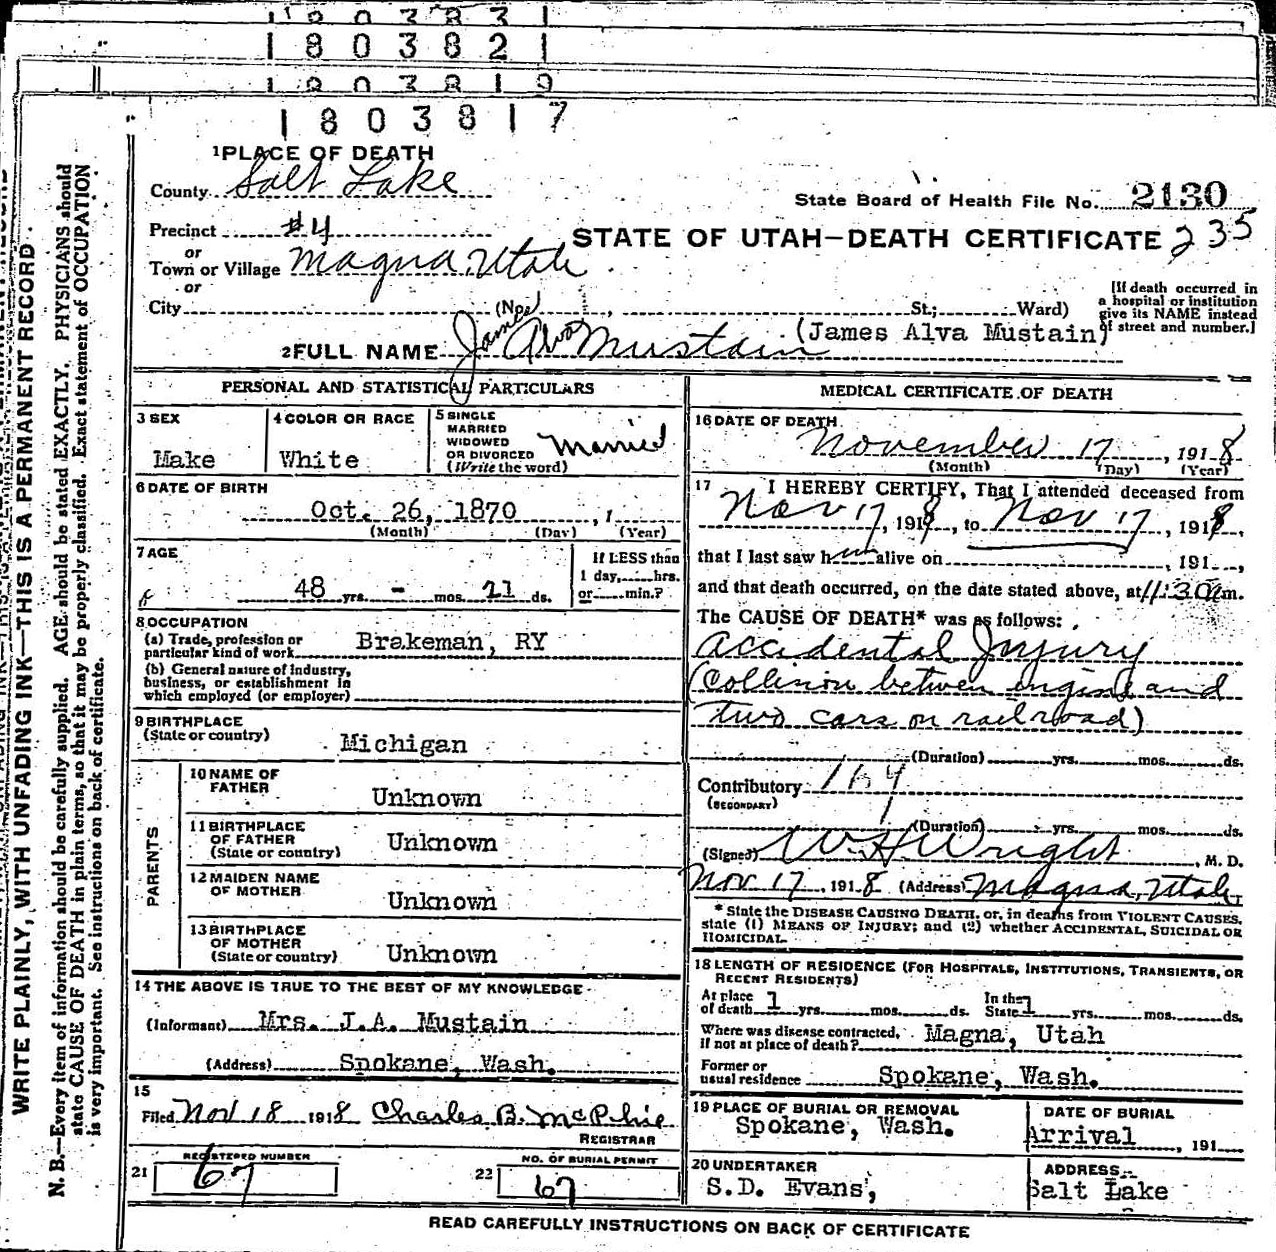 1 8 0 3 8 3 1
1 8 0 3 8 2 1
1 8 0 3 8 1 9
1 8 0 3 8 1 7
WRITE PLAINLY, WITH UNFADING INK—THIS IS A PERMANENT RECORD.
N. B.—Every item of information should be carefully supplied. AGE should be stated EXACTLY. PHYSICIANS should
state CAUSE OF DEATH in plain terms, so that it may be properly classified. Exact statement of OCCUPATION
is very important. See instructions on back of certificate.
1 PLACE OF DEATH
County Salt Lake
State Board of Health File No. 2130
Precinct #4
STATE OF UTAH—DEATH CERTIFICATE 235
or
Town or Village Magna, Utah
or
City (No. , St.; Ward)
[If death occurred in
a hospital or institution
give its NAME instead
of street and number.]
2 FULL NAME James Alva Mustain (James Alva Mustain)
PERSONAL AND STATISTICAL PARTICULARS
3 SEX
Make
4 COLOR OR RACE
White
5 SINGLE
MARRIED
WIDOWED
OR DIVORCED
(Write the word)
Married
6 DATE OF BIRTH
Oct. 26, 1870 , 1
(Month) (Day) (Year)
7 AGE
48 yrs. - mos. 21 ds.
If LESS than
1 day, hrs.
or min.?
8 OCCUPATION
(a) Trade, profession or
particular kind of work Brakeman, RY
(b) General nature of industry,
business, or establishment in
which employed (or employer)
9 BIRTHPLACE
(State or country)
Michigan
PARENTS
10 NAME OF
FATHER
Unknown
11 BIRTHPLACE
OF FATHER
(State or country)
Unknown
12 MAIDEN NAME
OF MOTHER
Unknown
13 BIRTHPLACE
OF MOTHER
(State or country)
Unknown
14 THE ABOVE IS TRUE TO THE BEST OF MY KNOWLEDGE
(Informant) Mrs. J.A. Mustain
(Address) Spokane, Wash.
15
Filed Nov 18 1918 Charles B. McPhie
REGISTRAR
REGISTERED NUMBER
21 67
NO. OF BURIAL PERMIT
22 67
MEDICAL CERTIFICATE OF DEATH
16 DATE OF DEATH
November 17 , 1918
(Month) (Day) (Year)
17 I HEREBY CERTIFY, That I attended deceased from
Nov 17, 1918, to Nov 17, 1918,
that I last saw him alive on , 191 ,
and that death occurred, on the date stated above, at 11:30 a m.
The CAUSE OF DEATH* was as follows:
Accidental Injury
(Collision between engine and
two cars on railroad)
(Duration) yrs. mos. ds.
Contributory 164
(SECONDARY)
(Duration) yrs. mos. ds.
(Signed) W. H. Wright, M. D.
Nov 17, 1918 (Address) Magna, Utah
* State the DISEASE CAUSING DEATH, or, in deaths from VIOLENT CAUSES,
state (1) MEANS OF INJURY; and (2) whether ACCIDENTAL, SUICIDAL OR
HOMICIDAL.
18 LENGTH OF RESIDENCE (FOR HOSPITALS, INSTITUTIONS, TRANSIENTS, OR
RECENT RESIDENTS)
At place
of death 1 yrs. mos. ds. In the
State 1 yrs. mos. ds.
Where was disease contracted,
if not at place of death? Magna, Utah
Former or
usual residence Spokane, Wash.
19 PLACE OF BURIAL OR REMOVAL
Spokane, Wash.
DATE OF BURIAL
Arrival , 191
20 UNDERTAKER
S.D. Evans,
ADDRESS
Salt Lake
READ CAREFULLY INSTRUCTIONS ON BACK OF CERTIFICATE